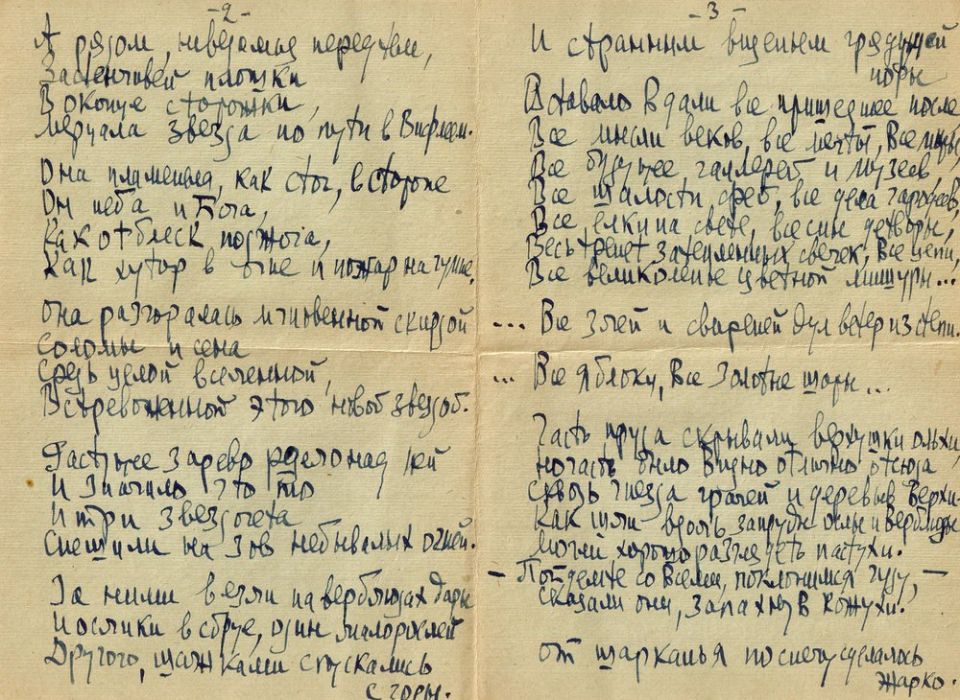 -2-
А рядом, неведомая перед тем,
Застенчивей плошки
В оконце сторожки,
Мерцала звезда по пути в Вифлеем.
Она пламенела, как стог, в стороне
От неба и Бога,
Как отблеск поджога,
Как хутор в огне и пожар на гумне.
Она разгоралась мгновенной скирдой
Соломы и сена
Средь целой вселенной,
Встревоженной этою новой звездой.
Растущее зарево рдело над ней
И значило что-то
И три звездочета
Спешили на зов небывалых огней.
За ними везли на верблюдах дары
И ослики в сбруе, один малорослей
Другого, шажками спускались
с горы.
-3-
И странным виденьем грядущей
поры
Вставало вдали все пришедшее после
Все мысли веков, все мечты, все миры,
Все будущее галлерей и музеев,
Все шалости фей, все дела чародеев,
Все елки на свете, все сны детворы,
Весь трепет затепленных свечек, все цепи,
Все великолепье цветной мишуры...
... Все злей и свирепей дул ветер из степи.
... Все яблоки, все золотые шары...
Часть пруда скрывали верхушки ольхи,
Но часть было видно отлично отсюда
Сквозь гнезда грачей и деревьев верхи.
Как шли вдоль запруды ослы и верблюды
Могли хорошо разглядеть пастухи.
- Пойдемте со всеми, поклонимся чуду, -
Сказали они, запахнув кожухи.
От шарканья по снегу сделалось
жарко.